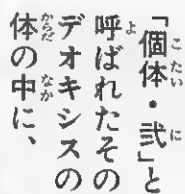 「個体・弐」と
呼ばれたその
デオキシスの
体の中に、